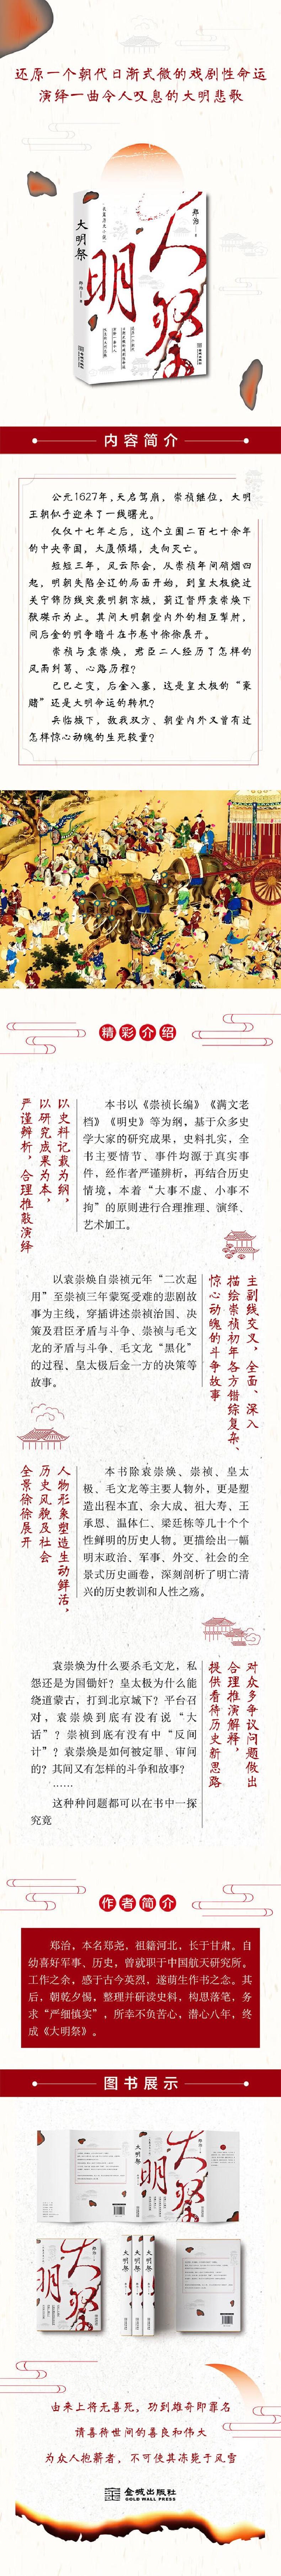 还原一个朝代日渐式微的戏剧性命运
演绎一曲令人叹息的大明悲歌
大明祭
郑治
长篇历史小说
大明祭
郑治
内容简介
公元1627年,天启驾崩,崇祯继位,大明
王朝似乎迎来了一线曙光。
仅仅十七年之后,这个立国二百七十余年
的中央帝国,大厦倾塌,走向灭亡。
短短三年,风云际会,从崇祯年间硝烟四
起,明朝失陷全辽的局面开始,到皇太极绕过
关宁锦防线突袭明朝京城,蓟辽督师袁崇焕下
狱磔示为止。其间大明朝堂内外的相互掣肘,
同后金的明争暗斗在书卷中徐徐展开。
崇祯与袁崇焕,君臣二人经历了怎样的
风雨纠葛、心路历程?
己巳之变,后金入塞,这是皇太极的“豪
赌”还是大明命运的转机?
兵临城下,敌我双方、朝堂内外又曾有过
怎样惊心动魄的生死较量?
精彩介绍
以史料记载为纲,
以研究成果为本,
严谨辨析,合理推敲演绎
本书以《崇祯长编》《满文老
档》《明史》等为纲,基于众多史
学大家的研究成果,史料扎实,全
书主要情节、事件均源于真实事
件,经作者严谨辨析,再结合历史
情境,本着“大事不虚、小事不
拘”的原则进行合理推理、演绎、
艺术加工。
以袁崇焕自崇祯元年“二次起
用”至崇祯三年蒙冤受难的悲剧故
事为主线,穿插讲述崇祯治国、决
策及君臣矛盾与斗争、崇祯与毛文
龙的矛盾与斗争、毛文龙“黑化”
的过程、皇太极后金一方的决策等
故事。
主副线交叉,全面、深入
描绘崇祯初年各方错综复杂、
惊心动魄的斗争故事
人物形象塑造生动鲜活,
历史风貌及社会
全景徐徐展开
本书除袁崇焕、崇祯、皇太
极、毛文龙等主要人物外,更是塑
造出程本直、余大成、祖大寿、王
承恩、温体仁、梁廷栋等几十个个
性鲜明的历史人物。更描绘出一幅
明末政治、军事、外交、社会的全
景式历史画卷,深刻剖析了明亡清
兴的历史教训和人性之殇。
袁崇焕为什么要杀毛文龙,私
怨还是为国锄奸?皇太极为什么能
绕道蒙古,打到北京城下?平台召
对,袁崇焕到底有没有说“大
话”?崇祯到底有没有中“反间
计”?袁崇焕是如何被定罪、审问
的?其间又有怎样的斗争和故事?
……
这种种问题都可以在书中一探
究竟
对众多争议问题做出
合理推演解释,
提供看待历史新思路
作者简介
郑治,本名郑尧,祖籍河北,长于甘肃。自
幼喜好军事、历史,曾就职于中国航天研究所。
工作之余,感于古今英烈,遂萌生作书之念。其
后,朝乾夕惕,整理并研读史料,构思落笔,务
求“严细慎实”,所幸不负苦心,潜心八年,终
成《大明祭》。
图书展示
大明祭
大明祭
大明祭
大明祭
大明祭
大明祭
由来上将无善死,功到雄奇即罪名
请善待世间的善良和伟大
为众人抱薪者,不可使其冻毙于风雪
金城出版社
GOLD WALL PRESS